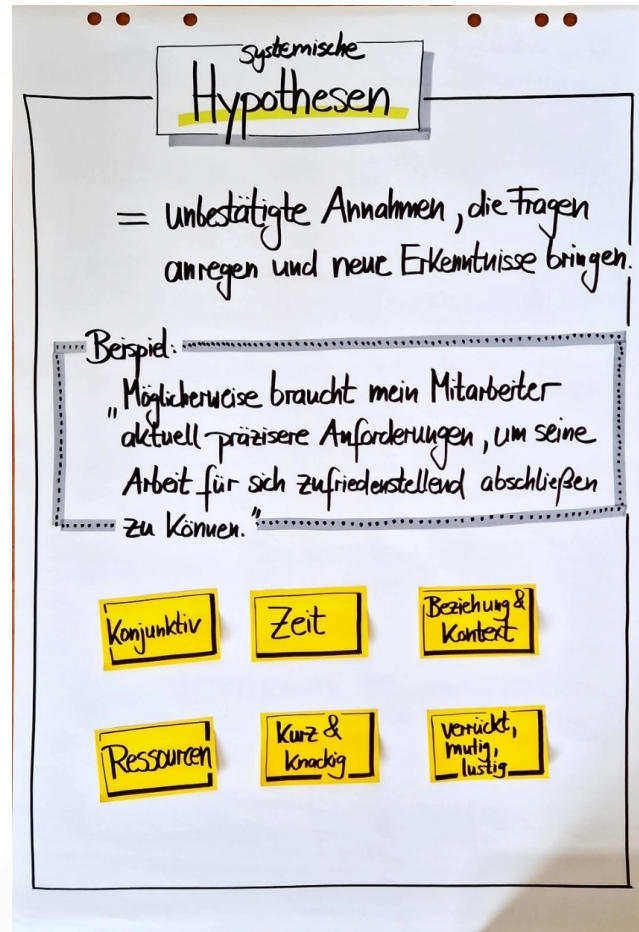 systemische
Hypothesen
= unbestätigte Annahmen, die Fragen
anregen und neue Erkenntnisse bringen.
Beispiel:
„Möglicherweise braucht mein Mitarbeiter
aktuell präzisere Anforderungen, um seine
Arbeit für sich zufriedenstellend abschließen
zu können."
Konjunktiv
Zeit
Beziehung &
Kontext
Ressourcen
Kurz &
knackig
verrückt,
mutig,
lustig